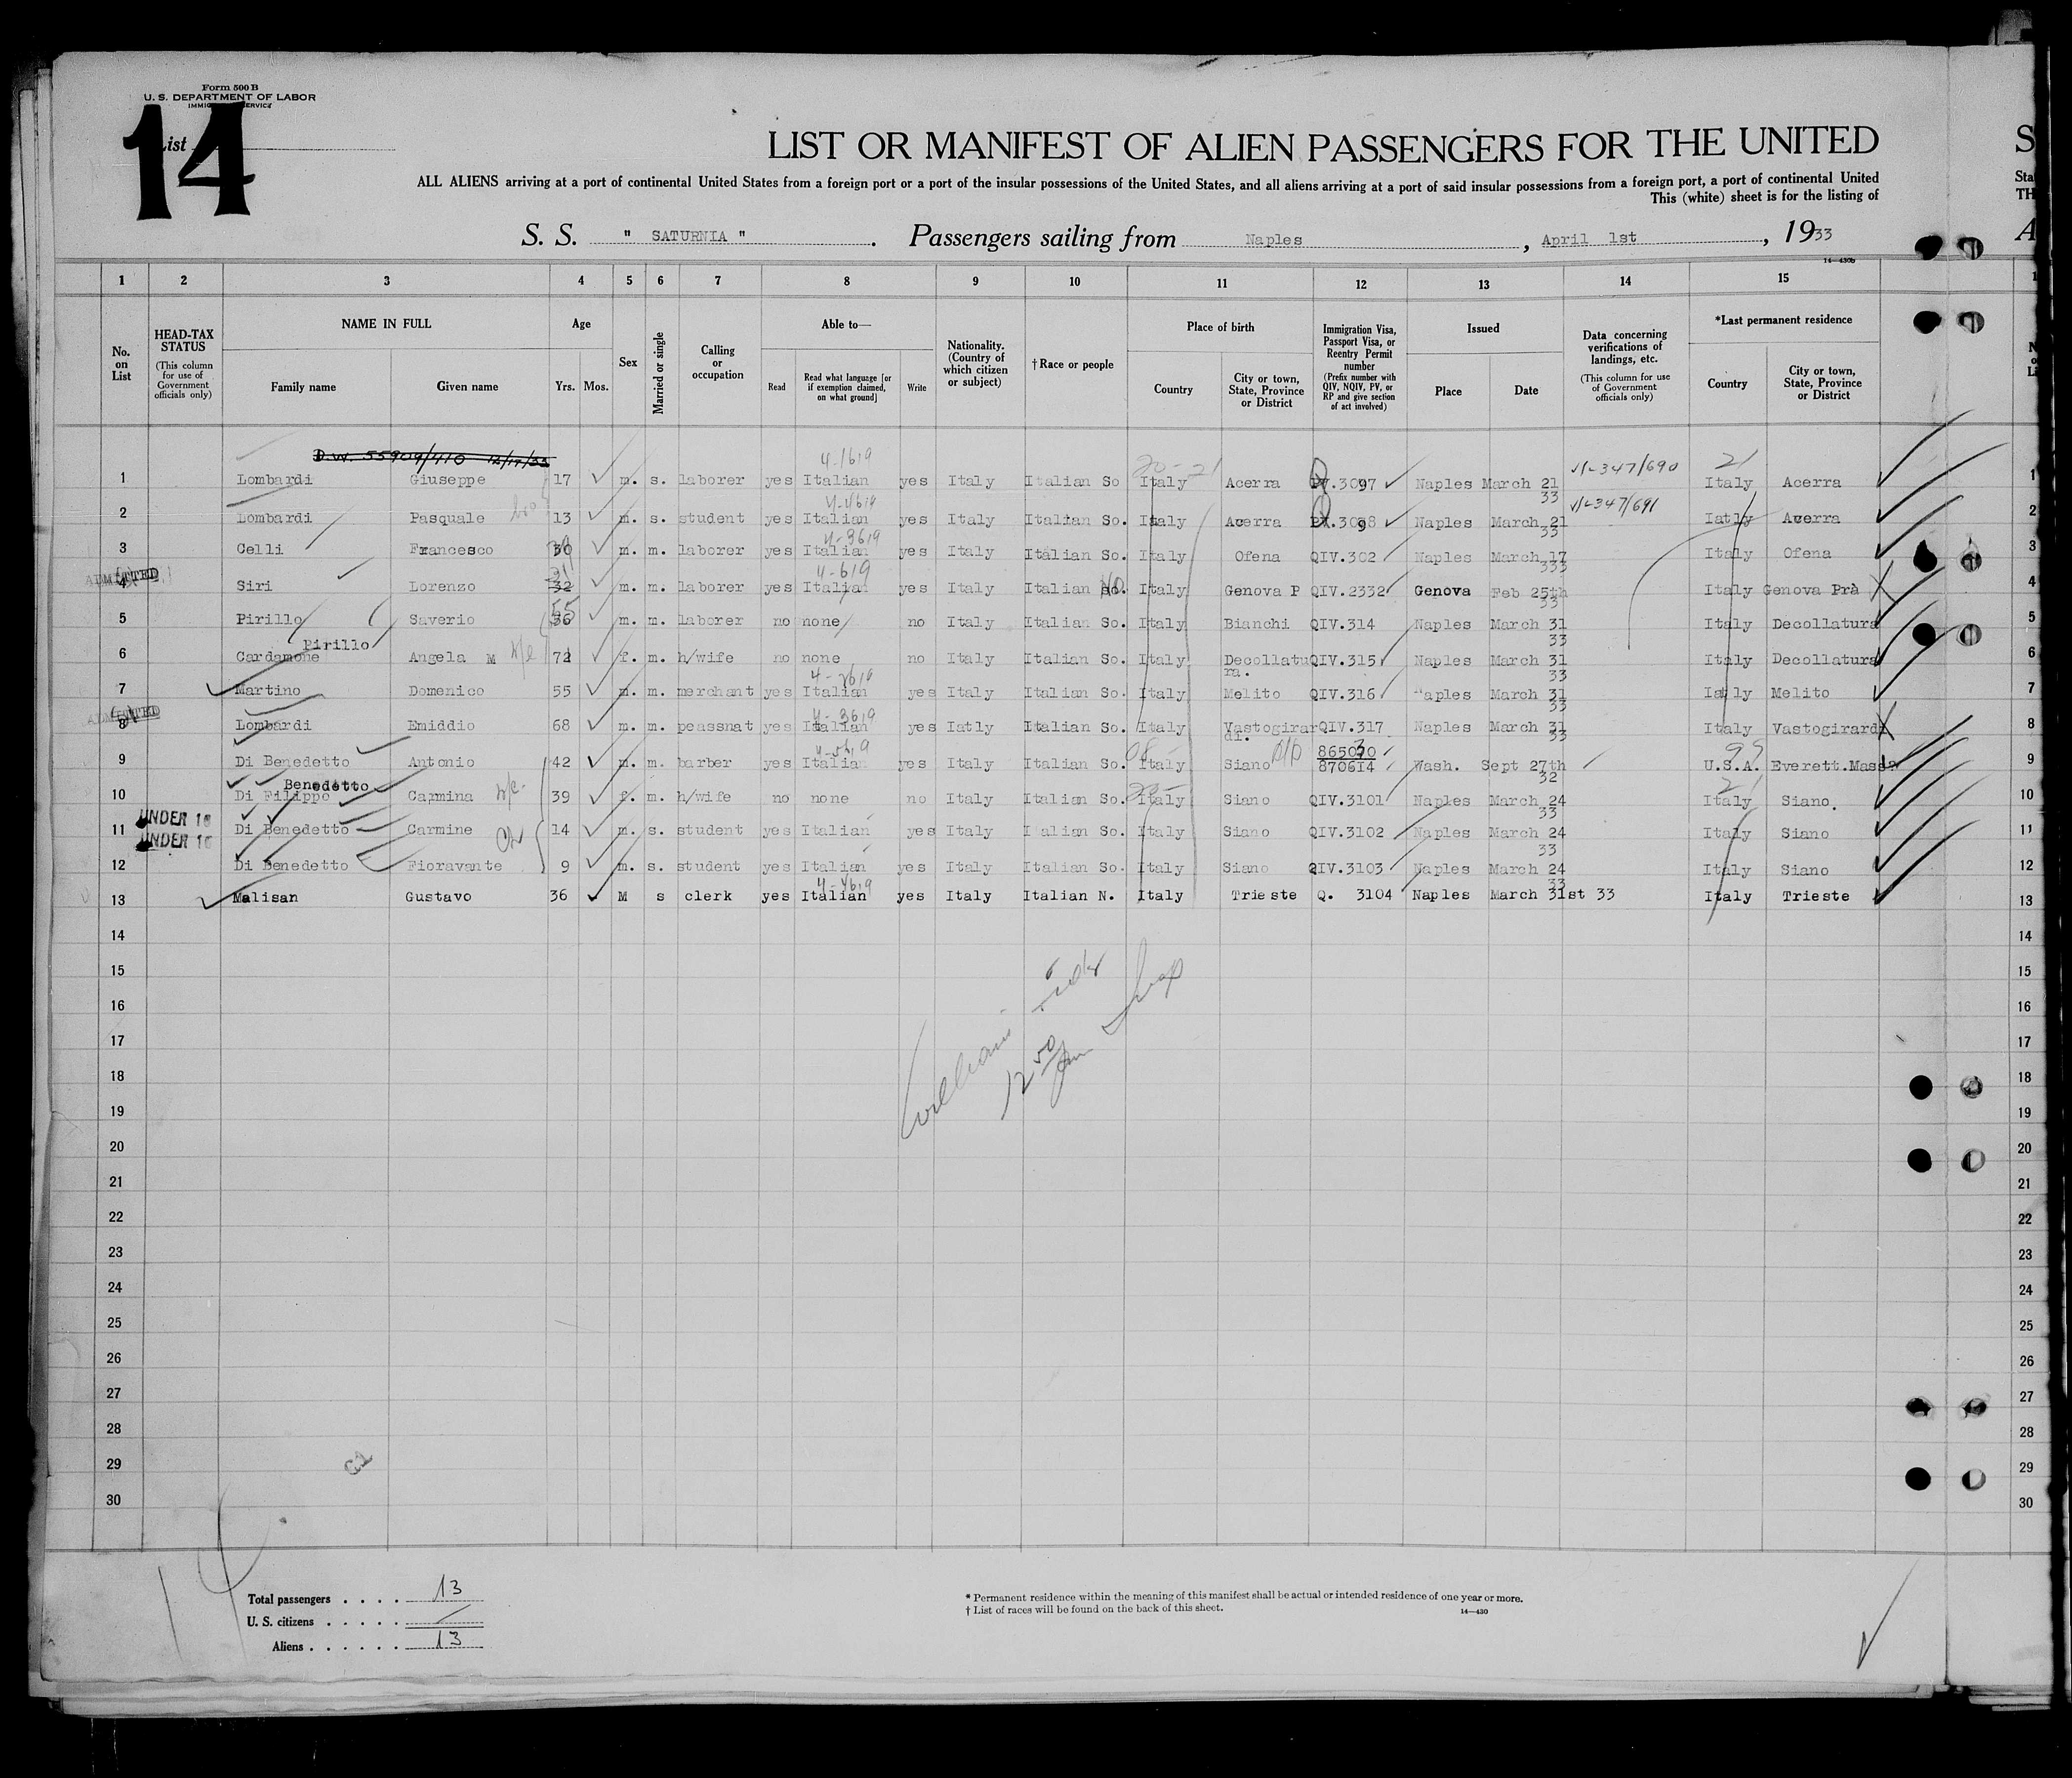 Form 500 B
U. S. DEPARTMENT OF LABOR
List 14
LIST OR MANIFEST OF ALIEN PASSENGERS FOR THE UNITED
ALL ALIENS arriving at a port of continental United States from a foreign port or a port of the insular possessions of the United States, and all aliens arriving at a port of said insular possessions from a foreign port, a port of continental United
This (white) sheet is for the listing of
S. S. " SATURNIA ". Passengers sailing from Naples, April 1st, 1933
14—430b
1 2 3 4 5 6 7 8 9 10 11 12 13 14 15
No. on List
HEAD-TAX STATUS (This column for use of Government officials only)
NAME IN FULL Family name Given name
Age Yrs. Mos.
Sex
Married or single
Calling or occupation
Able to— Read Read what language [or if exemption claimed, on what ground] Write
Nationality. (Country of which citizen or subject)
†Race or people
Place of birth Country City or town, State, Province or District
Immigration Visa, Passport Visa, or Reentry Permit number (Prefix number with QIV, NQIV, PV, or RP and give section of act involved)
Issued Place Date
Data concerning verifications of landings, etc. (This column for use of Government officials only)
*Last permanent residence Country City or town, State, Province or District
D.W. 55909/410 12/17/33
1 Lombardi Giuseppe 17 m. s. laborer yes Italian yes Italy Italian So Italy Acerra 3097 Naples March 21 33 V/-347/690 Italy Acerra 1
2 Lombardi Pasquale 13 m. s. student yes Italian yes Italy Italian So. Italy Acerra Naples March 21 33 V/-347/691 Iatly Acerra 2
3 Celli Francesco m. m. laborer yes Italian yes Italy Italian So. Italy Ofena QIV.302 Naples March 17 333 Italy Ofena 3
ADMITTED
4 Siri Lorenzo 32 m. m. laborer yes Italian yes Italy Italian No. Italy Genova P QIV.2332 Genova Feb 25th 33 Italy Genova Prà 4
5 Pirillo Saverio 55 36 m. m. laborer no none no Italy Italian So. Italy Bianchi QIV.314 Naples March 31 33 Italy Decollatura 5
Pirillo
6 Cardamone Angela M 72 f. m. h/wife no none no Italy Italian So. Italy Decollatura. QIV.315 Naples March 31 33 Italy Decollatura 6
7 Martino Domenico 55 m. m. merchant yes Italian yes Italy Italian So. Italy Melito QIV.316 Naples March 31 33 Iatly Melito 7
ADMITTED
8 Lombardi Emiddio 68 m. m. peassnat yes Italian yes Iatly Italian So. Italy Vastogirardi. QIV.317 Naples March 31 33 Italy Vastogirardi 8
9 Di Benedetto Antonio 42 m. m. barber yes Italian yes Italy Italian So. Italy Siano 870614 Wash. Sept 27th 32 U.S.A. Everett.Mass 9
Benedetto
10 Di Filippo Carmina 39 f. m. h/wife no none no Italy Italian So. Italy Siano QIV.3101 Naples March 24 33 Italy Siano. 10
UNDER 16
11 Di Benedetto Carmine 14 m. s. student yes Italian yes Italy Italian So. Italy Siano QIV.3102 Naples March 24 33 Italy Siano 11
UNDER 16
12 Di Benedetto Fioravante 9 m. s. student yes Italian yes Italy Italian So. Italy Siano QIV.3103 Naples March 24 33 Italy Siano 12
13 Malisan Gustavo 36 M s clerk yes Italian yes Italy Italian N. Italy Trieste Q. 3104 Naples March 31st 33 Italy Trieste 13
14 14
15 15
16 16
17 17
18 18
19 19
20 20
21 21
22 22
23 23
24 24
25 25
26 26
27 27
28 28
29 29
30 30
Total passengers . . . . 13
U. S. citizens . . . . .
Aliens . . . . . . 13
* Permanent residence within the meaning of this manifest shall be actual or intended residence of one year or more.
† List of races will be found on the back of this sheet.
14—430